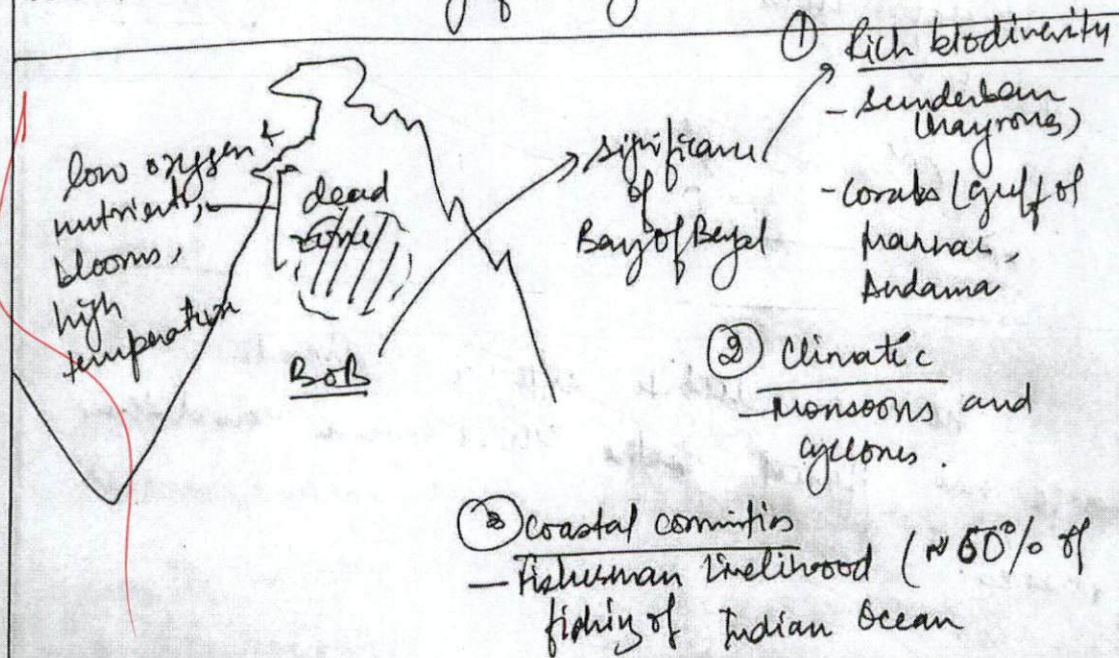 low oxygen +
nutrients,
blooms,
high
temperature
dead
zone
BOB
significance
of
Bay of Bengal
① Rich biodiversity
- Sunderban
(mangroves)
- Corals (gulf of
mannar,
Andama
② Climatic
- Monsoons and
cyclones.
③ coastal commities
- Fisherman livelihood (≈ 60% of
fishing of Indian Ocean